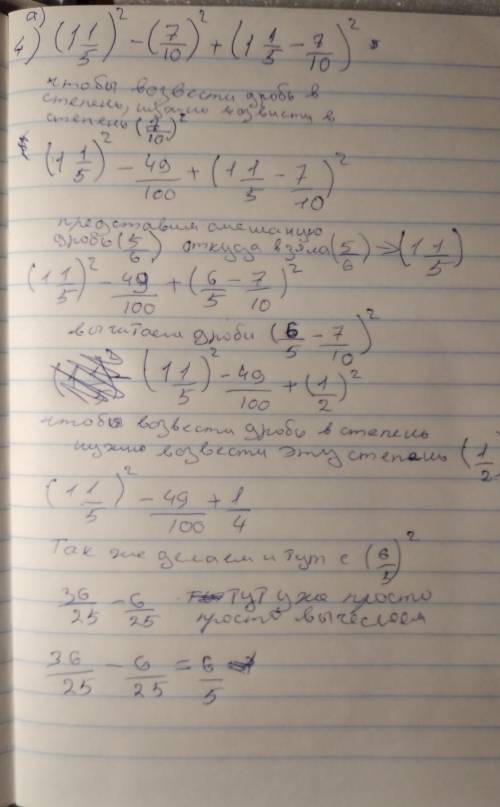 а)
4) (1 1/5)² - (7/10)² + (1 1/5 - 7/10)²
чтобы возвести дробь в
степень, нужно возвисти в
степень (7/10)²
(1 1/5)² - 49/100 + (1 1/5 - 7/10)²
представим смешаную
дробь (5/6) откуда взяла (5/6) → (1 1/5)
(1 1/5)² - 49/100 + (6/5 - 7/10)²
вычитаем дроби (6/5 - 7/10)²
(1 1/5)² - 49/100 + (1/2)²
чтобы возвести дробь в степень
нужно возвести эту степень (1/2
(1 1/5)² - 49/100 + 1/4
Так же делаем и тут с (6/5)²
36/25 - 6/25 Тут уже просто
просто вычеслаем
36/25 - 6/25 = 6/5